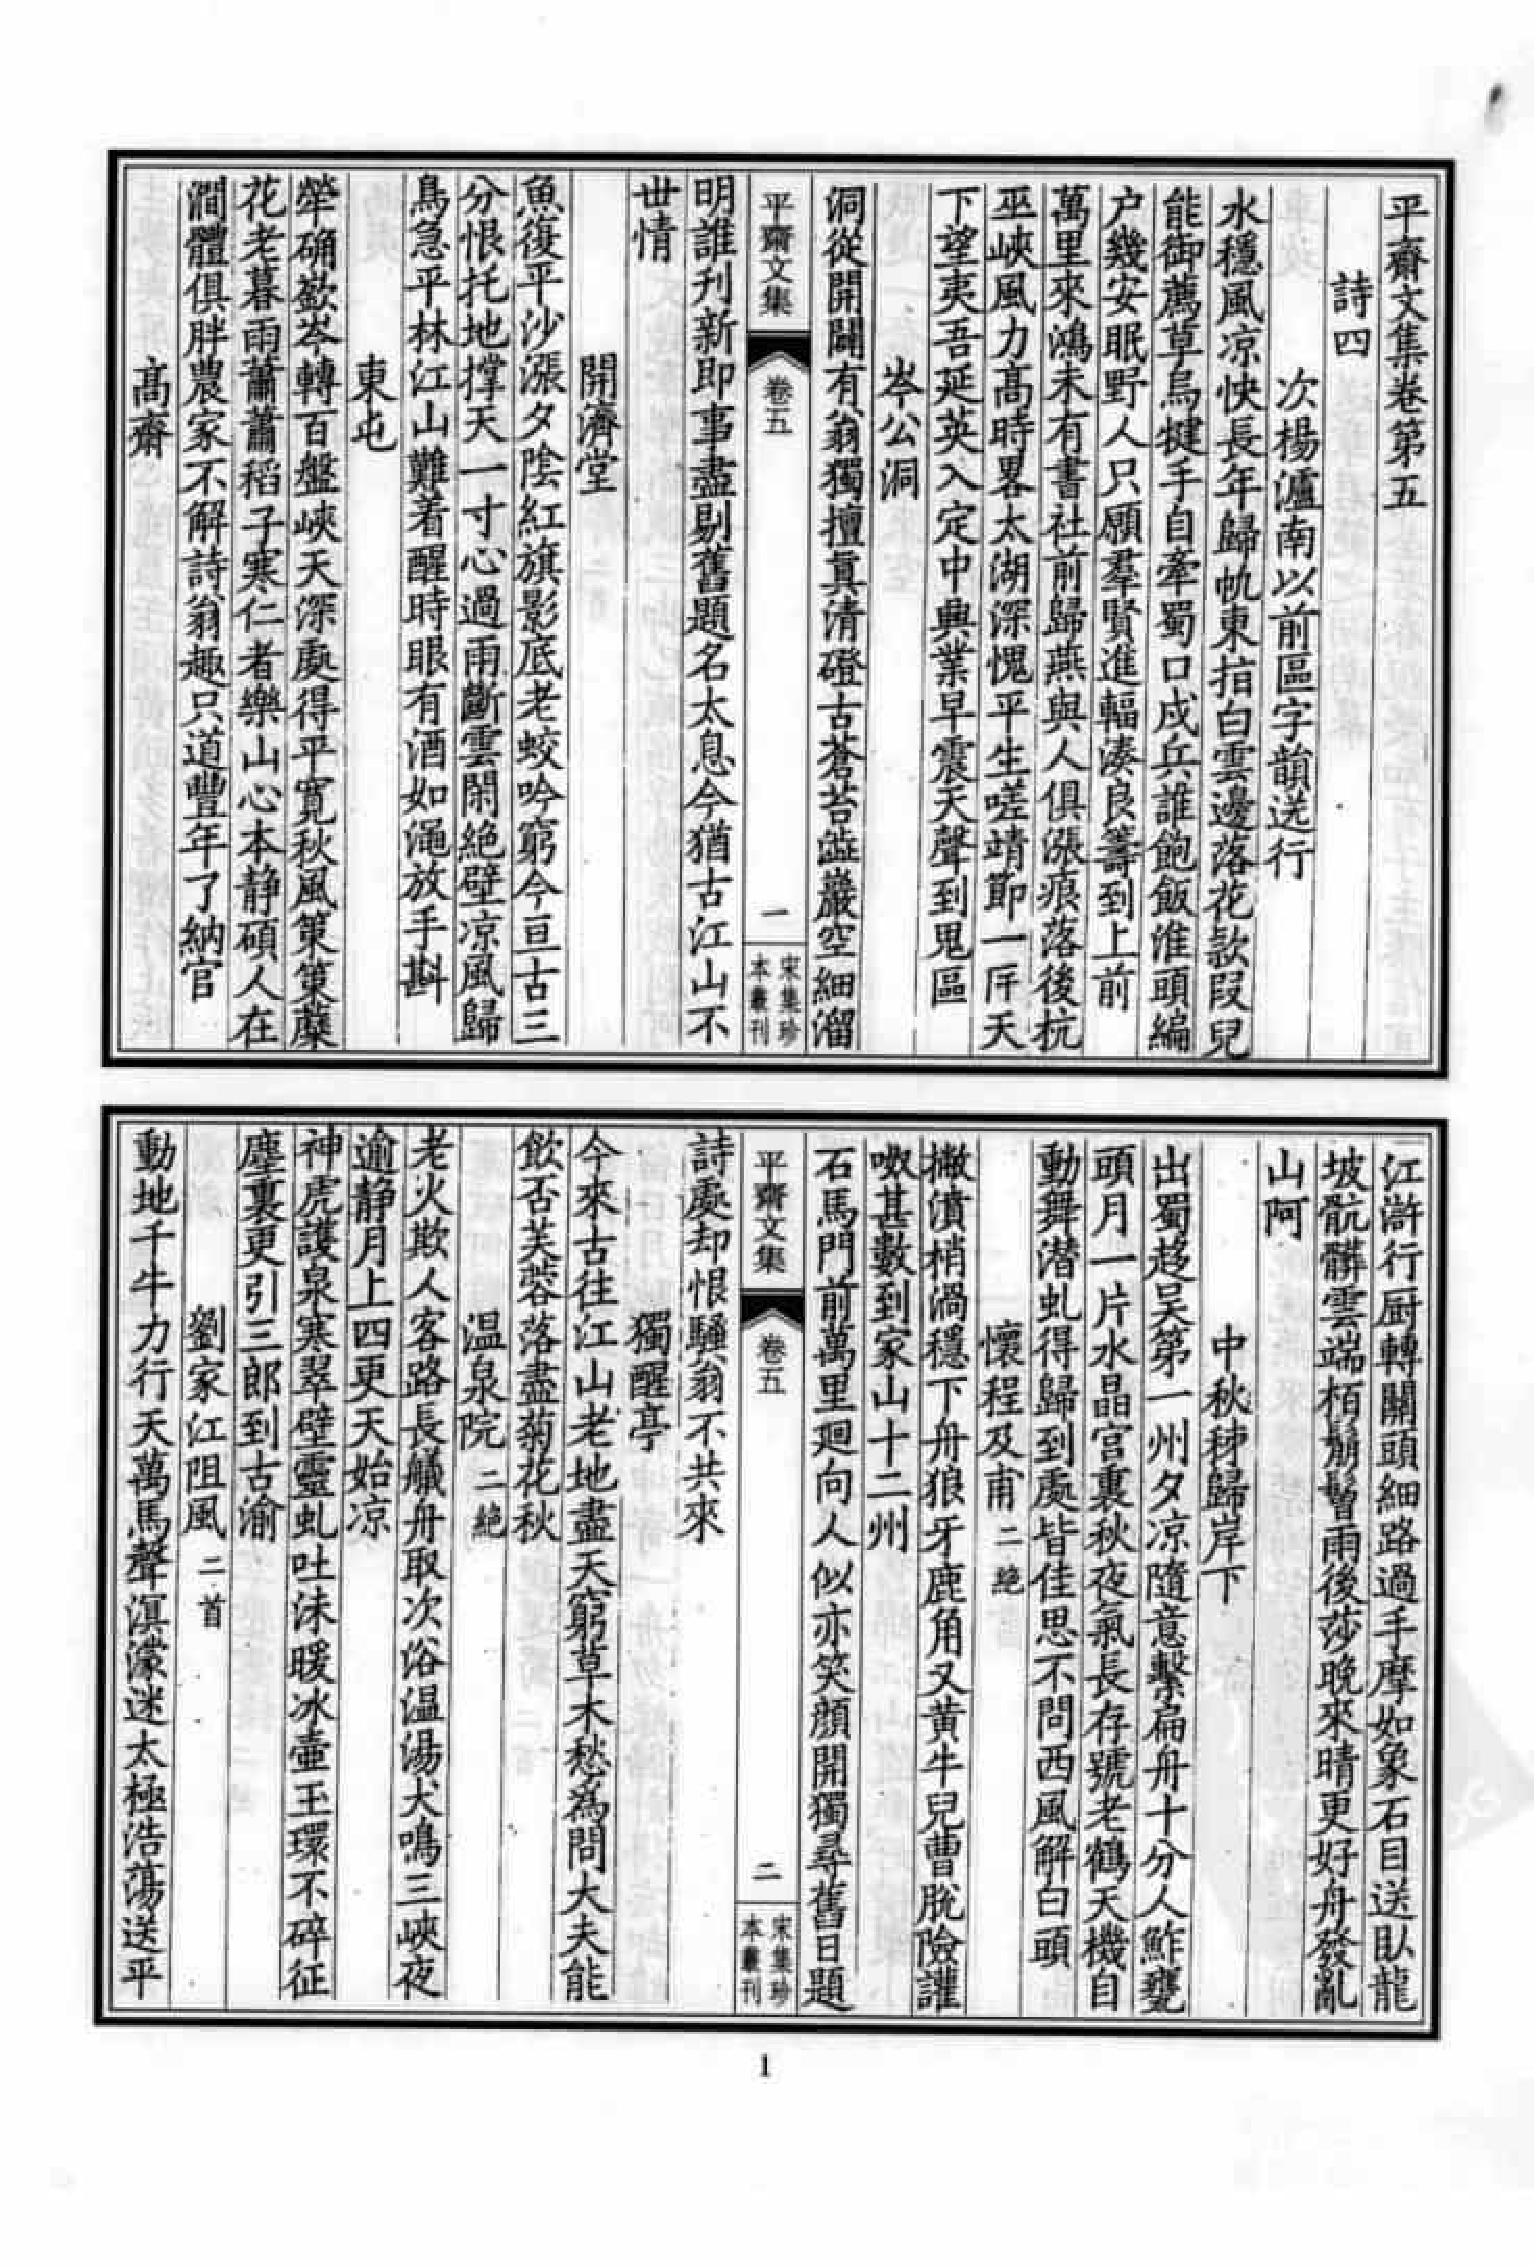 平齋文集卷第五
詩四
次楊瀘南以前區字韻送行
水穩風凉快長年歸帆東指白雲邊落花款段兒
能御薦草烏犍手自牽蜀口戍兵誰飽飯淮頭編
户幾安眠野人只願羣賢進輻湊良籌到上前
萬里來鴻未有書社前歸燕與人俱漲痕落後杭
巫峽風力髙時畧太湖深愧平生嗟靖節一厈天
下望夷吾延英入定中興業早震天聲到鬼區
岑公洞
洞從開闢有翁獨擅眞清磴古蒼苔澁巖空細溜
平齋文集
卷五
一
宋集珍
本叢刊
明誰刋新即事盡剔舊題名太息今猶古江山不
世情
開濟堂
魚復平沙漲夕陰紅旗影底老蛟吟窮今亘古三
分恨托地撑天一寸心過雨斷雲閑絶壁凉風歸
鳥急平林江山難着醒時眼有酒如澠放手斟
東屯
犖确嶔岑轉百盤峽天深處得平寬秋風策策蘽
花老暮雨蕭蕭稻子寒仁者樂山心本静碩人在
澗體俱胖農家不解詩翁趣只道豐年了納官
髙齋
江滸行厨轉關頭細路過手摩如象石目送臥龍
坡骯髒雲端栢鬅鬙雨後莎晚來晴更好舟發亂
山阿
中秋秭歸岸下
出蜀趍吴第一州夕凉隨意繫扁舟十分人鮓甕
頭月一片水晶宫裏秋夜氣長存號老鶴天機自
動舞潛虬得歸到處皆佳思不問西風解白頭
懷程及甫二絶
撇濆梢渦穩下舟狼牙鹿角又黄牛兒曹脱險讙
呶甚數到家山十二州
石馬門前萬里迴向人似亦笑顔開獨尋舊日題
平齋文集
卷五
二
宋集珍
本叢刊
詩處却恨騷翁不共來
獨醒亭
今來古往江山老地盡天窮草木愁為問大夫能
飲否芙蓉落盡菊花秋
温泉院二絶
老火欺人客路長艤舟取次浴温湯犬鳴三峽夜
逾静月上四更天始凉
神虎護泉寒翠壁靈虬吐沫暖冰壷玉環不碎征
塵裏更引三郎到古渝
劉家江阻風二首
動地千牛力行天萬馬聲溟濛迷太極浩蕩送平
1